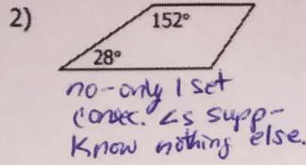 2)
152°
28°
no-only 1 set
consec. ∠s supp-
Know nothing else.